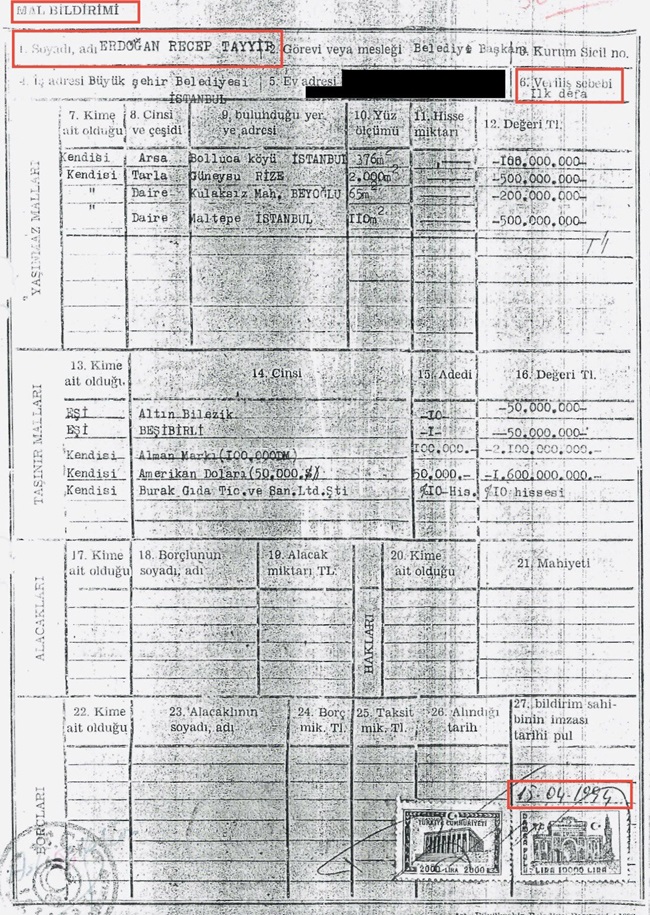 MAL BİLDİRİMİ
1. Soyadı, adı ERDOĞAN RECEP TAYYİP 2. Görevi veya mesleği Belediye Başkanı 3. Kurum Sicil no.
4. İş adresi Büyük şehir Belediyesi İSTANBUL 5. Ev adresi 6. Veriliş sebebi İlk defa
YAŞINMAZ MALLARI
7. Kime ait olduğu 8. Cinsi ve çeşidi 9. bulunduğu yer ve adresi 10. Yüz ölçümü 11. Hisse miktarı 12. Değeri Tl.
Kendisi Arsa Bolluca köyü İSTANBUL 376m2 -100.000.000-
Kendisi Tarla Güneysu RİZE 2.000m2 -500.000.000-
" Daire Kulaksız Mah. BEYOĞLU 65m2 -200.000.000-
" Daire Maltepe İSTANBUL 110m2 -500.000.000-
TAŞINIR MALLARI
13. Kime ait olduğu. 14. Cinsi 15. Adedi 16. Değeri Tl.
EŞİ Altın Bilezik -10- -50.000.000-
EŞİ BEŞİBİRLİ -1- -50.000.000-
Kendisi Alman Markı(100.000DM) 100.000.- -2.100.000.000-
Kendisi Amerikan Doları(50.000.$) 50.000.- -1.600.000.000-
Kendisi Burak Gıda Tic.ve San.Ltd.Şti %10-His. %10 hissesi
ALACAKLARI
17. Kime ait olduğu 18. Borçlunun soyadı, adı 19. Alacak miktarı TL. 20. Kime ait olduğu 21. Mahiyeti
HAKLARI
BORÇLARI
22. Kime ait olduğu 23. Alacaklının soyadı, adı 24. Borç mik. Tl. 25. Taksit mik. Tl. 26. Alındığı tarih 27. bildirim sahibinin imzası tarihi pul
15.04.1994
TÜRKİYE CUMHURİYETİ
2000 LİRA 2000
DAMGA PULU
LİRA 10000 LİRA